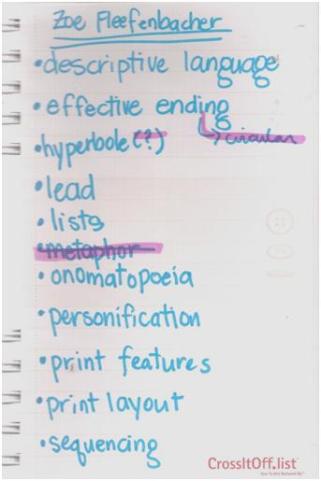 Zoe Fleefenbacher
•descriptive language
•effective ending
↳circular
•hyperbole(?)
•lead
•lists
•metaphor
•onomatopoeia
•personification
•print features
•print layout
•sequencing
CrossItOff.list